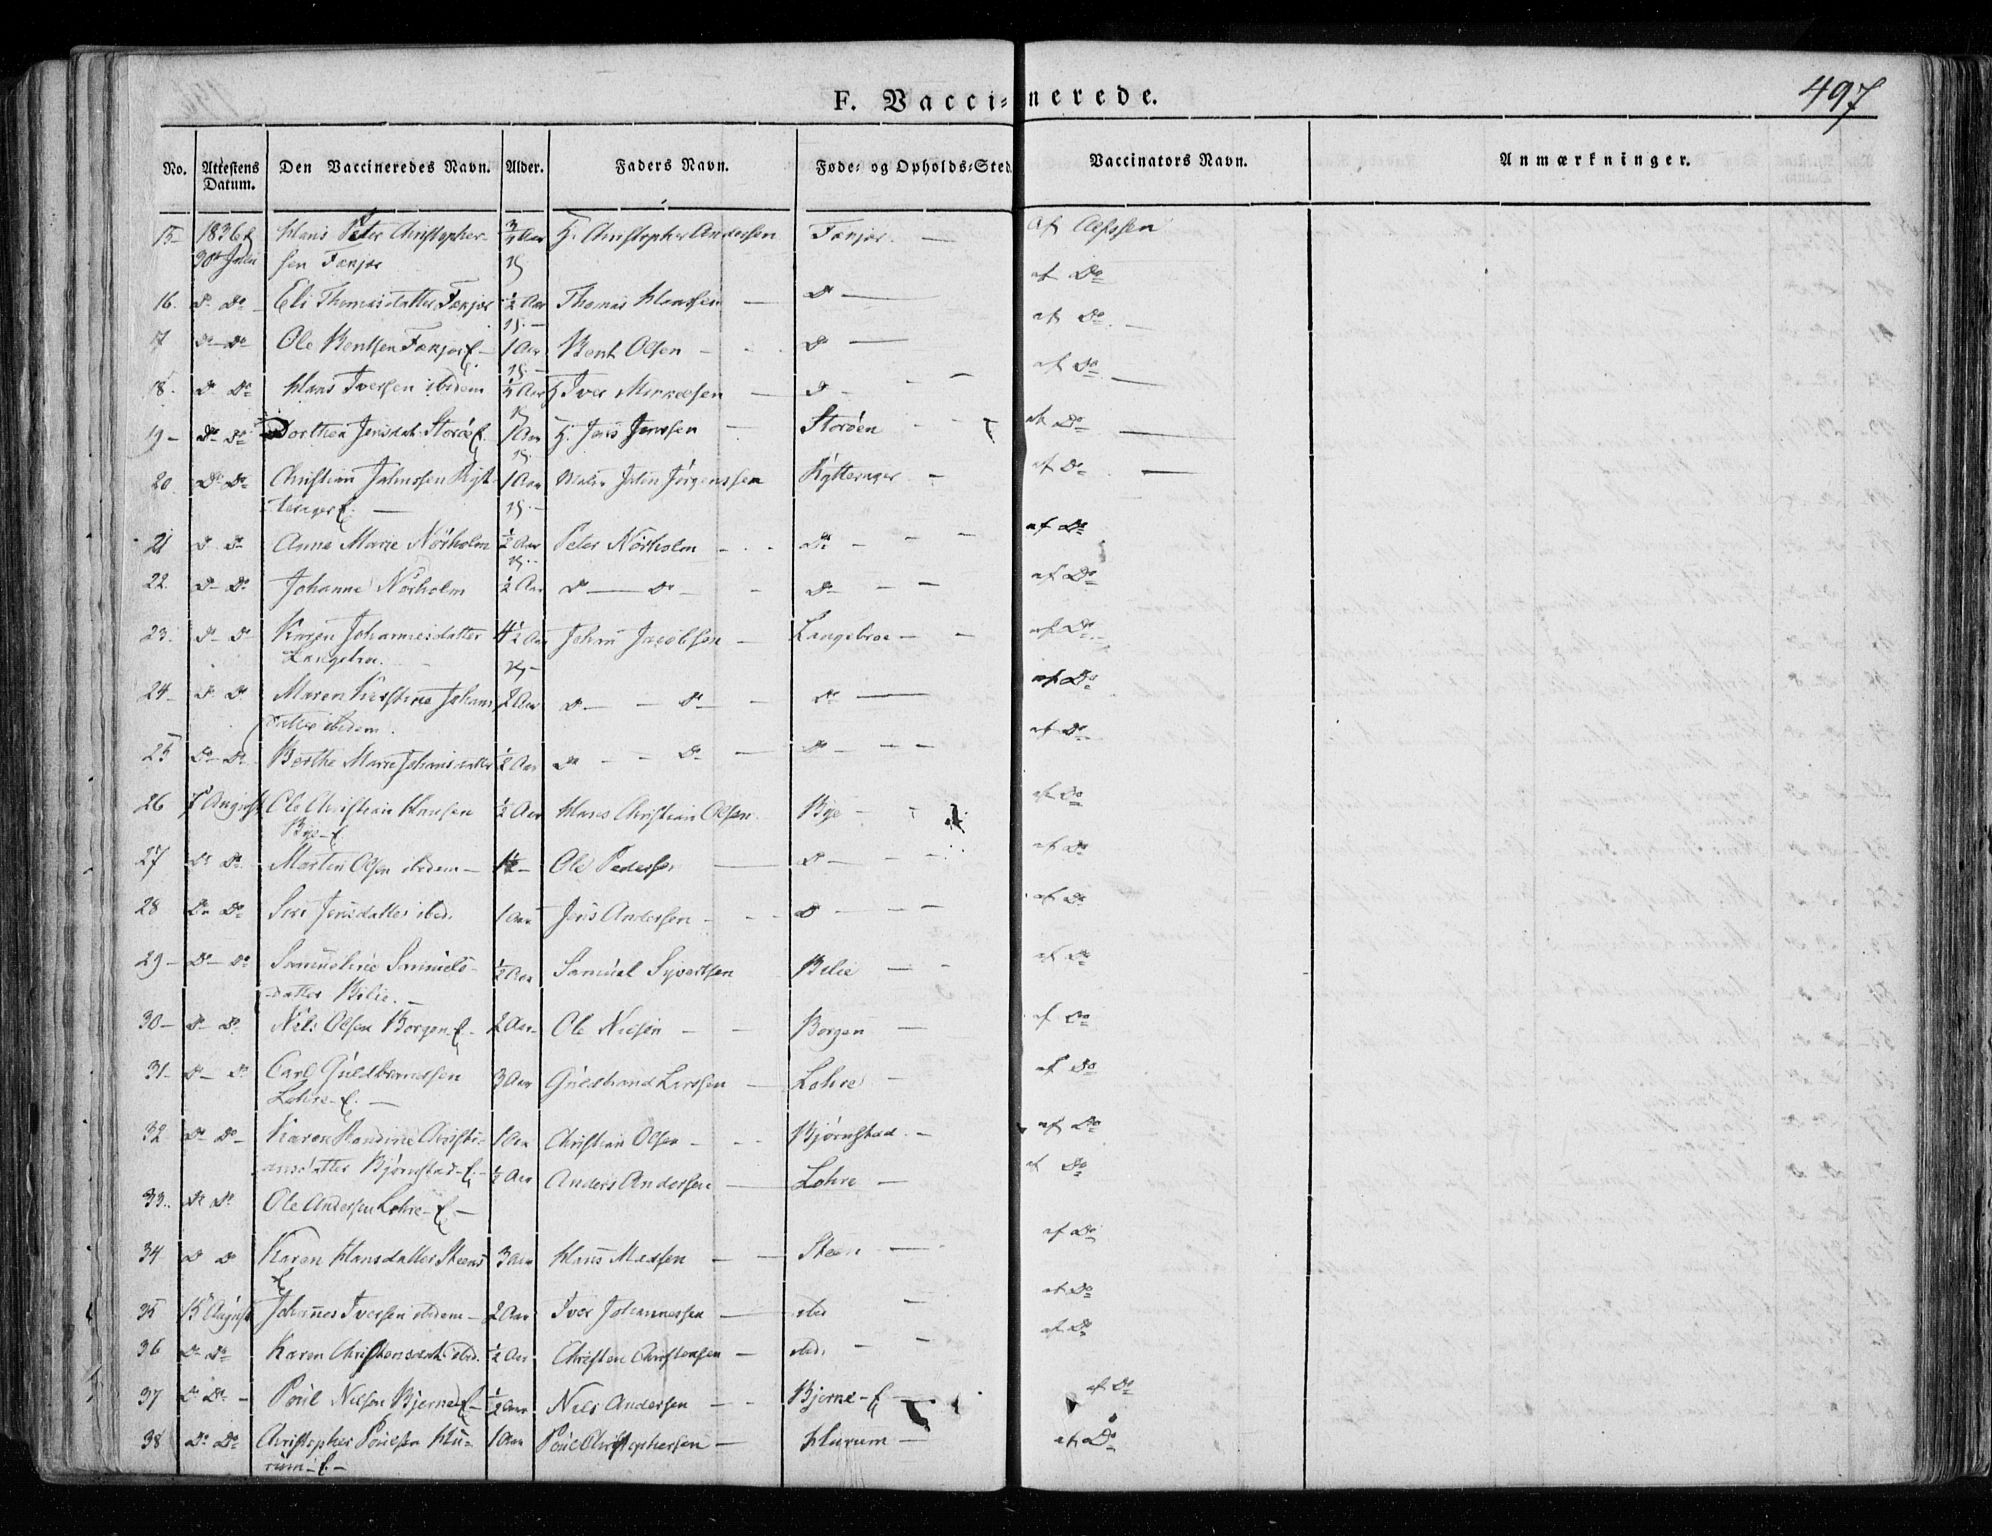 F. Vaccinerede.
497
No. Attestens Datum. Den Vaccineredes Navn. Alder. Faders Navn. Føde- og Opholds-Sted Vaccinators Navn. Anmærkninger.
15 1836 Hans Peter Christopher- 3/4 Aar H. Christopher Andersen
30te sen
16. Do Do Eli Thomasdatter 1/2 Aar Thomas Hansen Do af Do
17 Do Do Ole Bentsen 1 Aar Bent Olsen Do af Do
18. Do Do Hans Iversen ibidem 1/2 Aar Iver Do af Do
19 Do Do Dorthea Jensdat. Storøe 1 Aar H. Jens Jensen Storøen af Do
20 Do Do Christian 1 Aar Jørgenssen af Do
21 Do Do Anne Marie Nörholm 1/2 Aar Peter Nörholm Do af Do
22. Do Do Johanne Nörholm 1/2 Aar Do Do Do af Do
23. Do Do Karen Johannesdatter 4 1/2 Aar Johan Jacobsen Langebroe af Do
24 Do Do Maren Kirstine Johans 2 Aar Do Do Do af Do
datter ibidem.
25 Do Do Berthe Marie Johansdatter 1/2 Aar Do Do Do af Do
26 7 August Ole Christian Hansen 1/2 Aar Hans Christian Olsen Bye af Do
Bye
27 Do Do Martin Olsen ibidem Ole Pedersen Do af Do
28 Do Do Siri Jensdatter ibid. 1 Aar Jens Andersen Do af Do
29 Do Do Samueline Samuels- 1/2 Aar Samuel Syvertsen Bilie af Do
datter Bilie.
30 Do Do Nils Olsen Borgen 2 Aar Ole Borgen af Do
31 Do Do Carl Guldbrandsen 3 Aar Guldbrand Larssen Lohre af Do
Lohre
32 Do Do Karen Randine Christi- 1 Aar Christian Olsen Bjørnstad af Do
ansdatter Bjørnstad
33. Do Do Ole Andersen Lohre 1/2 Aar Anders Andersen Lohre af Do
34 Do Do Karen Hansdatter Steens 3 Aar Hans Madsen Steen af Do
35 15 August Johannes Iversen ibidem 2 Aar Iver Johannessen ibid af Do
36 Do Do Karen Christensdat. ibid. 1/2 Aar Christen Christensen ibid. af Do
37 Do Do Poul Nilsen Bjerne 1/2 Aar Nils Andersen Bjerne af Do
38 Do Do Christopher Poulsen Hu- 1 Aar Poul Christophersen Hurum af Do
rum